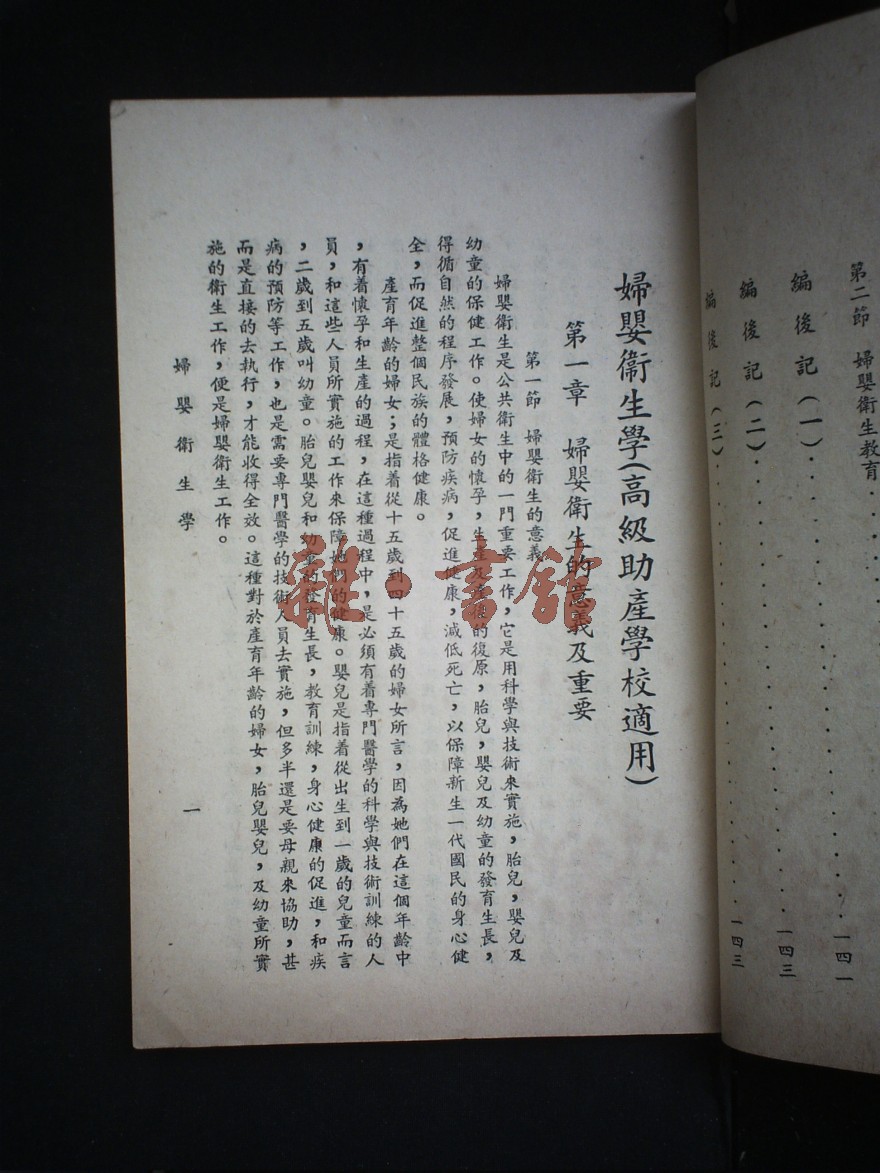 第二節　婦嬰衛生教育・・・・・・・・・・・・・一四一
編後記(一)・・・・・・・・・・・・・・・一四三
編後記(二)・・・・・・・・・・・・・・・一四三
編後記(三)
婦嬰衛生學(高級助產學校適用)
第一章　婦嬰衛生的意義及重要
第一節　婦嬰衛生的意義
婦嬰衛生是公共衛生中的一門重要工作，它是用科學與技術來實施，胎兒，嬰兒及
幼童的保健工作。使婦女的懷孕，生產及產後的復原，胎兒，嬰兒及幼童的發育生長，
得循自然的程序發展，預防疾病，促進健康，減低死亡，以保障新生一代國民的身心健
全，而促進整個民族的體格健康。
產育年齡的婦女；是指着從十五歲到四十五歲的婦女所言，因為她們在這個年齡中
，有着懷孕和生產的過程，在這種過程中，是必須有着專門醫學的科學與技術訓練的人
員，和這些人員所實施的工作來保障她們的健康。嬰兒是指着從出生到一歲的兒童而言
，二歲到五歲叫幼童。胎兒嬰兒和幼童的發育生長，教育訓練，身心健康的促進，和疾
病的預防等工作，也是需要專門醫學的技術人員去實施，但多半還是要母親來協助，甚
而是直接的去執行，才能收得全效。這種對於產育年齡的婦女，胎兒嬰兒，及幼童所實
施的衛生工作，便是婦嬰衛生工作。
婦嬰衛生學
一
雜·書館